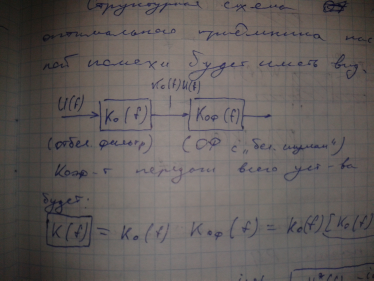 Структурная схема
оптимального приёмника
помехи будет иметь вид.
K₀(f)U(f)
U(f) K₀(f) Kоф(f)
(отбел. фильтр) (ОФ с „бел. шумом")
Коэф-т передачи всего уст-ва
будет:
K(f) = K₀(f) Kоф(f) = K₀(f)[K₀(f)